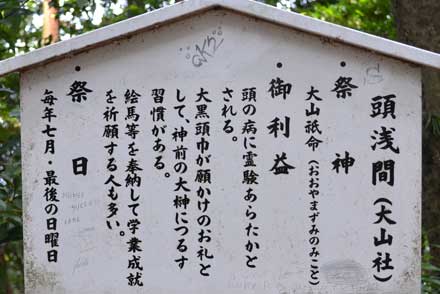 頭浅間(大山社)
・祭神
大山祇命(おおやまずみのみこと)
・御利益
頭の病に霊験あらたかと
される。
大黒頭巾が願かけのお礼と
して、神前の大榊につるす
習慣がある。
絵馬等を奉納して学業成就
を祈願する人も多い。
・祭日
毎年七月・最後の日曜日